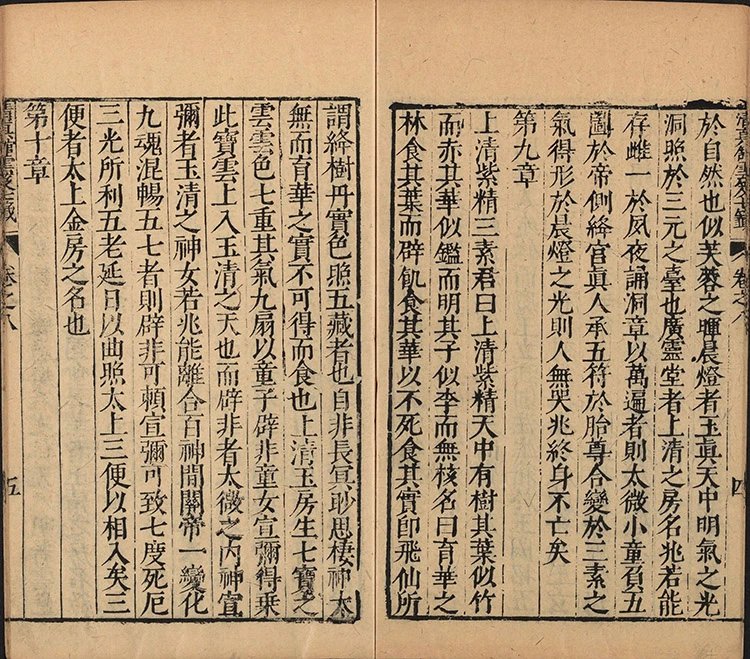 於自然也似芙蓉之暉晨燈者玉眞天中明氣之光
洞照於三元之臺也廣靈堂者上清之房名兆若能
存雌一於夙夜誦洞章以萬遍者則太微小童負五
圖於帝側絳宮眞人承五符於胎尊合變於三素之
氣得形於晨燈之光則人無哭兆終身不亡矣
第九章
上清紫精三素君曰上清紫精天中有樹其葉似竹
而赤其華似鑑而明其子似李而無核名曰育華之
林食其葉而辟飢食其華以不死食其實即飛仙所
謂絳樹丹實色照五藏者也自非長冥眇思棲神太
無而育華之實不可得而食也上清玉房生七寶之
雲雲色七重其氣九扇以童子辟非童女宣彌得乗
此寶雲上入玉清之天也而辟非者太微之内神宣
彌者玉清之神女若兆能離合百神開關帝一變化
九魂混暢五七者則辟非可頼宣彌可致七度死厄
三光所利五老延日以曲照太上三便以相入矣三
便者太上金房之名也
第十章
卷之八
四
卷之八
五